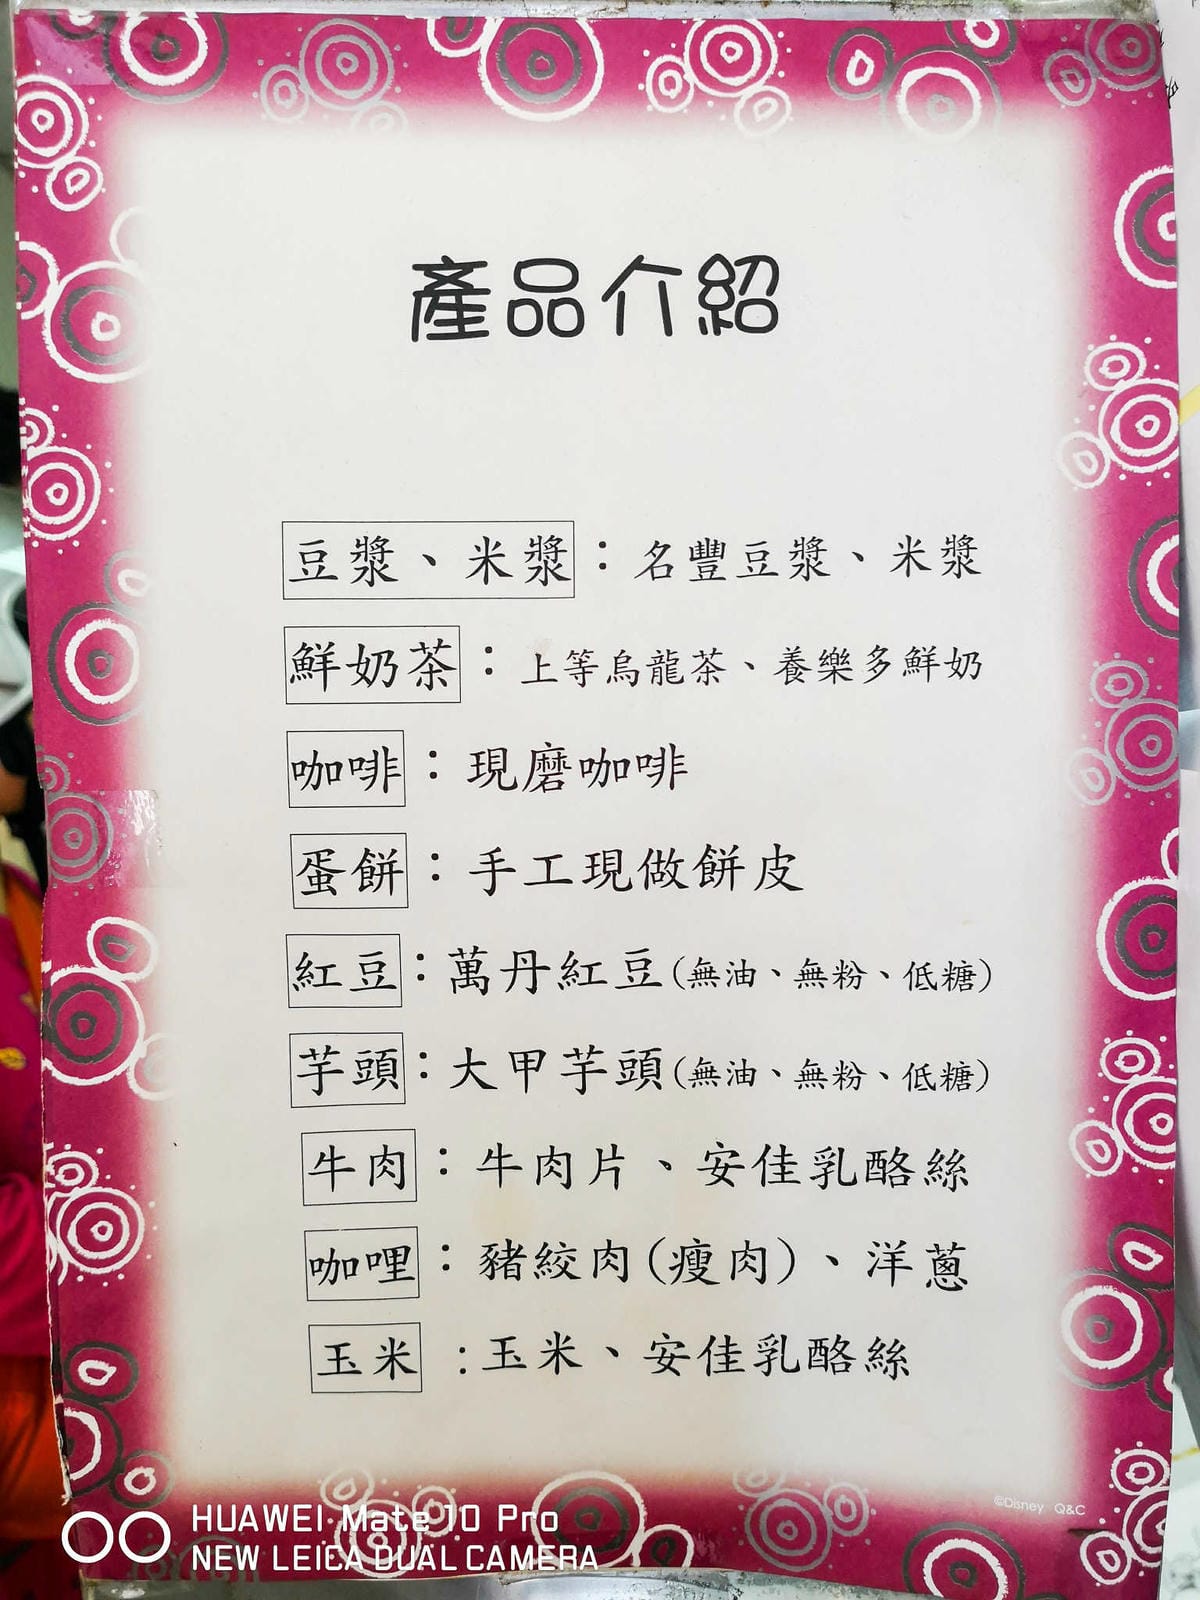 產品介紹
豆漿、米漿：名豐豆漿、米漿
鮮奶茶：上等烏龍茶、養樂多鮮奶
咖啡：現磨咖啡
蛋餅：手工現做餅皮
紅豆：萬丹紅豆(無油、無粉、低糖)
芋頭：大甲芋頭(無油、無粉、低糖)
牛肉：牛肉片、安佳乳酪絲
咖哩：豬絞肉(瘦肉)、洋蔥
玉米:玉米、安佳乳酪絲
©Disney Q&C
HUAWEI Mate 10 Pro
NEW LEICA DUAL CAMERA